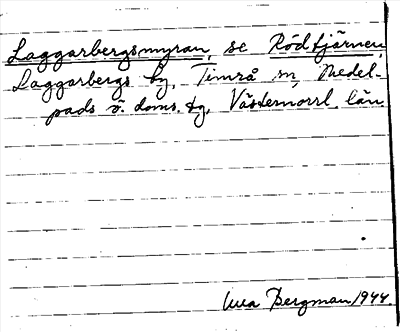 Laggarbergsmyran, se Rödtjärnen,
Laggarbergs by, Timrå sn, Medel-
pads ö. doms. tg, Västernorrl. län
Bergman 1944.